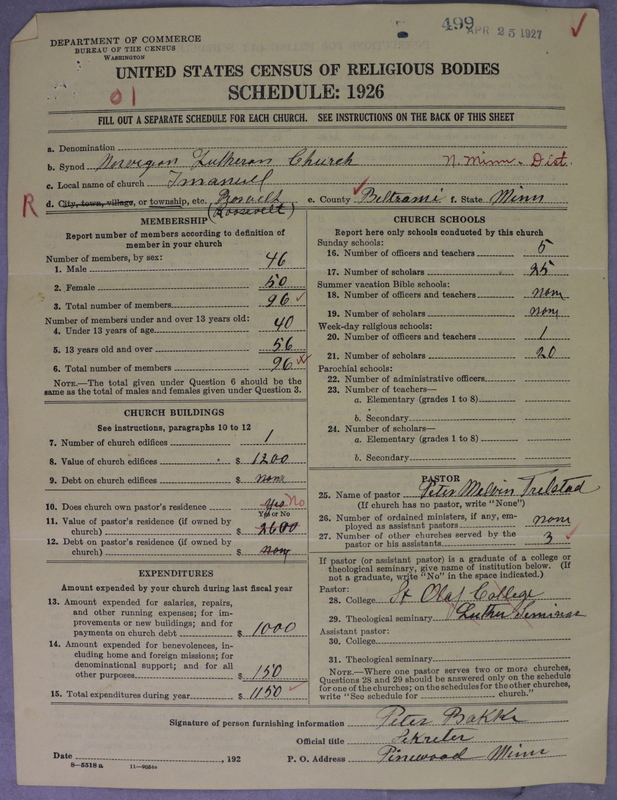 499 APR 25 1927 ✓
DEPARTMENT OF COMMERCE
BUREAU OF THE CENSUS
WASHINGTON
UNITED STATES CENSUS OF RELIGIOUS BODIES
SCHEDULE: 1926
01
FILL OUT A SEPARATE SCHEDULE FOR EACH CHURCH. SEE INSTRUCTIONS ON THE BACK OF THIS SHEET
a. Denomination
b. Synod Norwegian Lutheran Church N. Minn. Dist.
c. Local name of church Imanuel
R d. City, town, village, or township, etc. (Roosevelt) e. County Beltrami f. State Minn
MEMBERSHIP
Report number of members according to definition of member in your church
Number of members, by sex:
1. Male 46
2. Female 50
3. Total number of members 96 ✓
Number of members under and over 13 years old:
4. Under 13 years of age 40
5. 13 years old and over 56
6. Total number of members 96
NOTE.—The total given under Question 6 should be the
same as the total of males and females given under Question 3.
CHURCH BUILDINGS
See instructions, paragraphs 10 to 12
7. Number of church edifices 1
8. Value of church edifices $ 1200
9. Debt on church edifices $ none
10. Does church own pastor's residence Yes No
Yes or No
11. Value of pastor's residence (if owned by
church) $ 2600
12. Debt on pastor's residence (if owned by
church) $ none
EXPENDITURES
Amount expended by your church during last fiscal year
13. Amount expended for salaries, repairs,
and other running expenses; for im-
provements or new buildings; and for
payments on church debt $ 1000
14. Amount expended for benevolences, in-
cluding home and foreign missions; for
denominational support; and for all
other purposes $ 150
15. Total expenditures during year $ 1150 ✓
CHURCH SCHOOLS
Report here only schools conducted by this church
Sunday schools:
16. Number of officers and teachers 5
17. Number of scholars 25
Summer vacation Bible schools:
18. Number of officers and teachers none
19. Number of scholars none
Week-day religious schools:
20. Number of officers and teachers 1
21. Number of scholars 20
Parochial schools:
22. Number of administrative officers
23. Number of teachers—
a. Elementary (grades 1 to 8)
b. Secondary
24. Number of scholars—
a. Elementary (grades 1 to 8)
b. Secondary
PASTOR
25. Name of pastor Peter Melvin Trelstad
(If church has no pastor, write "None")
26. Number of ordained ministers, if any, em-
ployed as assistant pastors none
27. Number of other churches served by the
pastor or his assistants 3 ✓
If pastor (or assistant pastor) is a graduate of a college or
theological seminary, give name of institution below. (If
not a graduate, write "No" in the space indicated.)
Pastor:
28. College St Olaf College
29. Theological seminary Luther Seminar
Assistant pastor:
30. College
31. Theological seminary
NOTE.—Where one pastor serves two or more churches,
Questions 28 and 29 should be answered only on the schedule
for one of the churches; on the schedules for the other churches,
write "See schedule for church."
Signature of person furnishing information Peter Bakke
Official title Sekretær
Date , 192 P. O. Address Pinewood Minn
8—5518 a